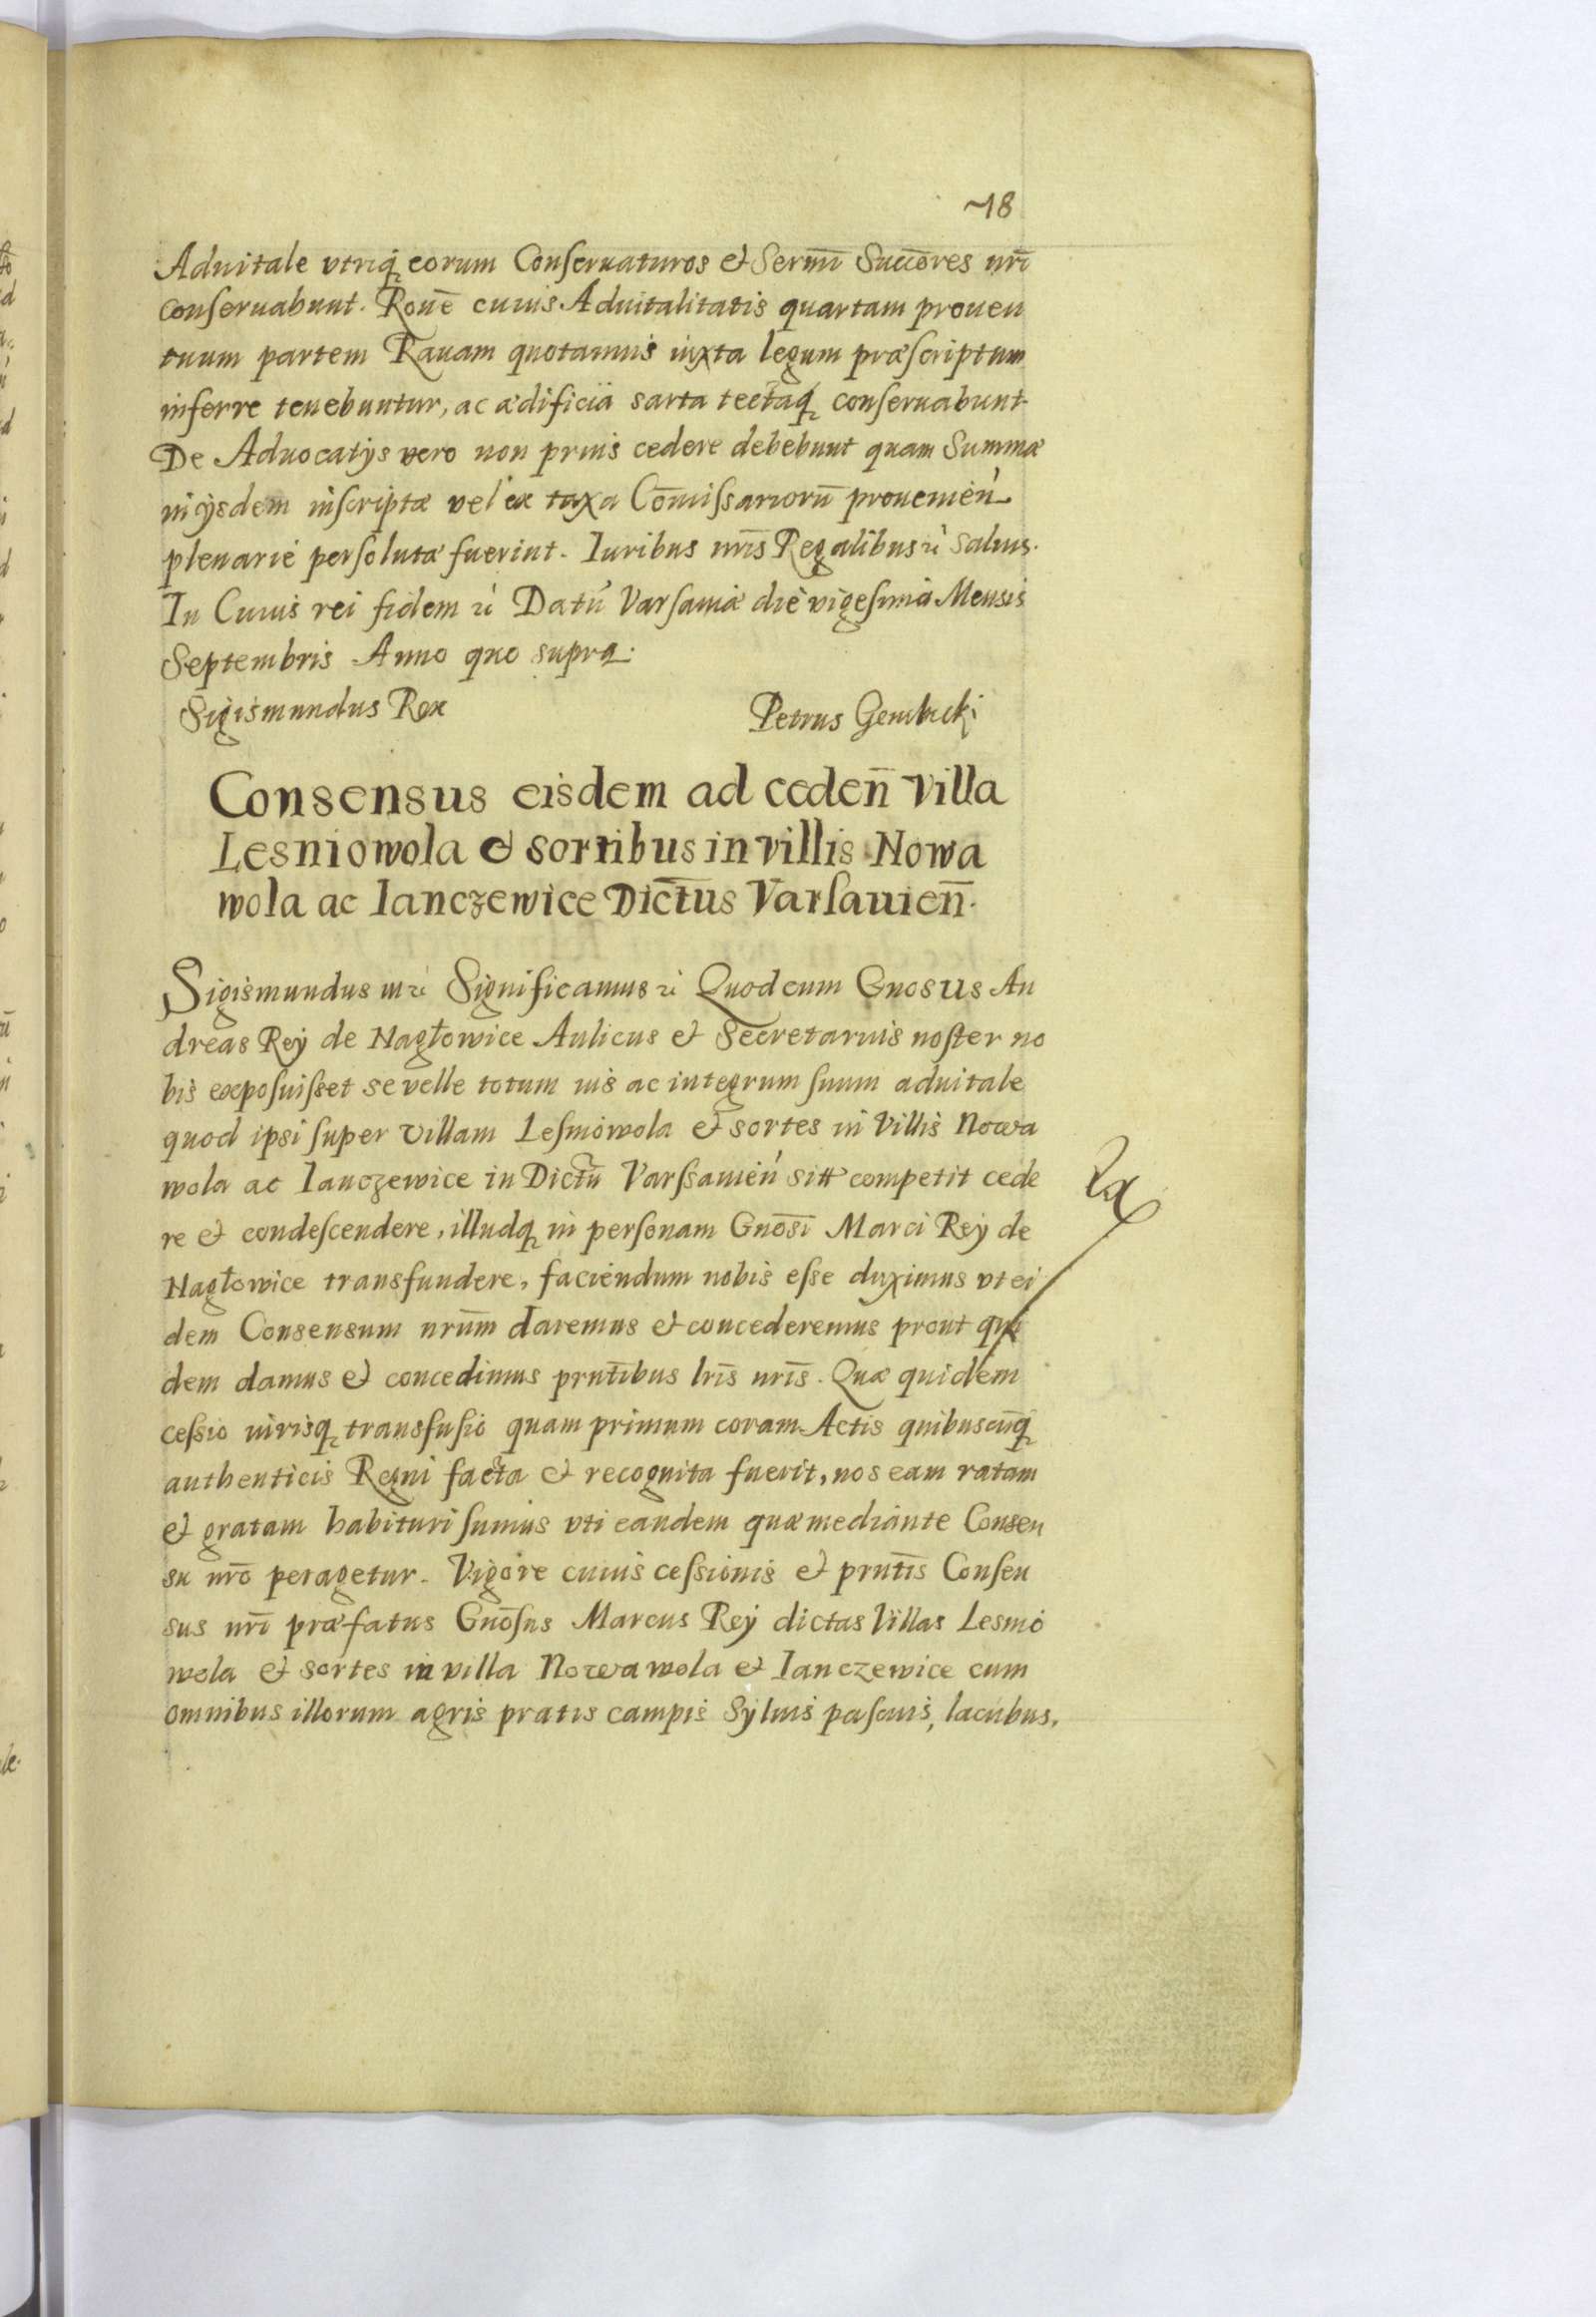 18
Aduitale vtriq̨ eorum Conseruaturos et Serm̄i Succ̄ores nr̄i
conseruabunt. Ron̄e cuius Aduitalitatis quartam prouen
tuum partem Rauam quotannis iuxta legum præscriptum
inferre tenebuntur, ac ædificia sarta tectaq̨ conseruabunt
De Aduocatijs vero non prius cedere debebunt quam Summæ
in ijsdem inscriptæ vel ex taxa Com̄issariorū prouenień
plenarie persolutæ fuerint. Iuribus nr̄is Regalibus ư saluis.
In Cuius rei fidem ư Datū Varsauiæ die vigesima Mensis
Septembris Anno quo supra.
Sigismundus Rex Petrus Gembicki
Consensus eisdem ad ceden̄ villa
Lesniowola et sortibus in villis Nowa
wola ac Ianczewice Dict̄us Varsauien̄.
Sigismundus III ư Significamus ư Quod cum Gnosus An
dreas Rey de Nagłowice Aulicus et Secretarius noster no
bis exposuisset se velle totum ius ac integrum suum aduitale
quod ipsi super Villam Lesniowola et sortes in Villis Nowa
wola ac Ianczewice in Dictū Varssauień sitt competit cede
re et condescendere, illudq̨ in personam Gnōsi Marci Rey de
Nagłowice transfundere, faciendum nobis esse duximus vt ei
dem Consensum nrūm daremus et concederemus prout qui
dem damus et concedimus prnt̄ibus lr̄is nr̄is. Quæ quidem
cessio iurisq̨ transfusio quam primum coram Actis quibuscūq̨
authenticis Regni facta et recognita fuerit, nos eam ratam
et gratam habituri sumus vti eandem quæ mediante Consen
su nrō peragetur. Vigore cuius cessionis et prnt̄is Consen
sus nr̄i præfatus Gnōsus Marcus Rey dictas Villas Lesnio
wola et sortes in villa Nowa wola et Ianczewice cum
omnibus illorum agris pratis campis Syluis pascuis, lacubus,